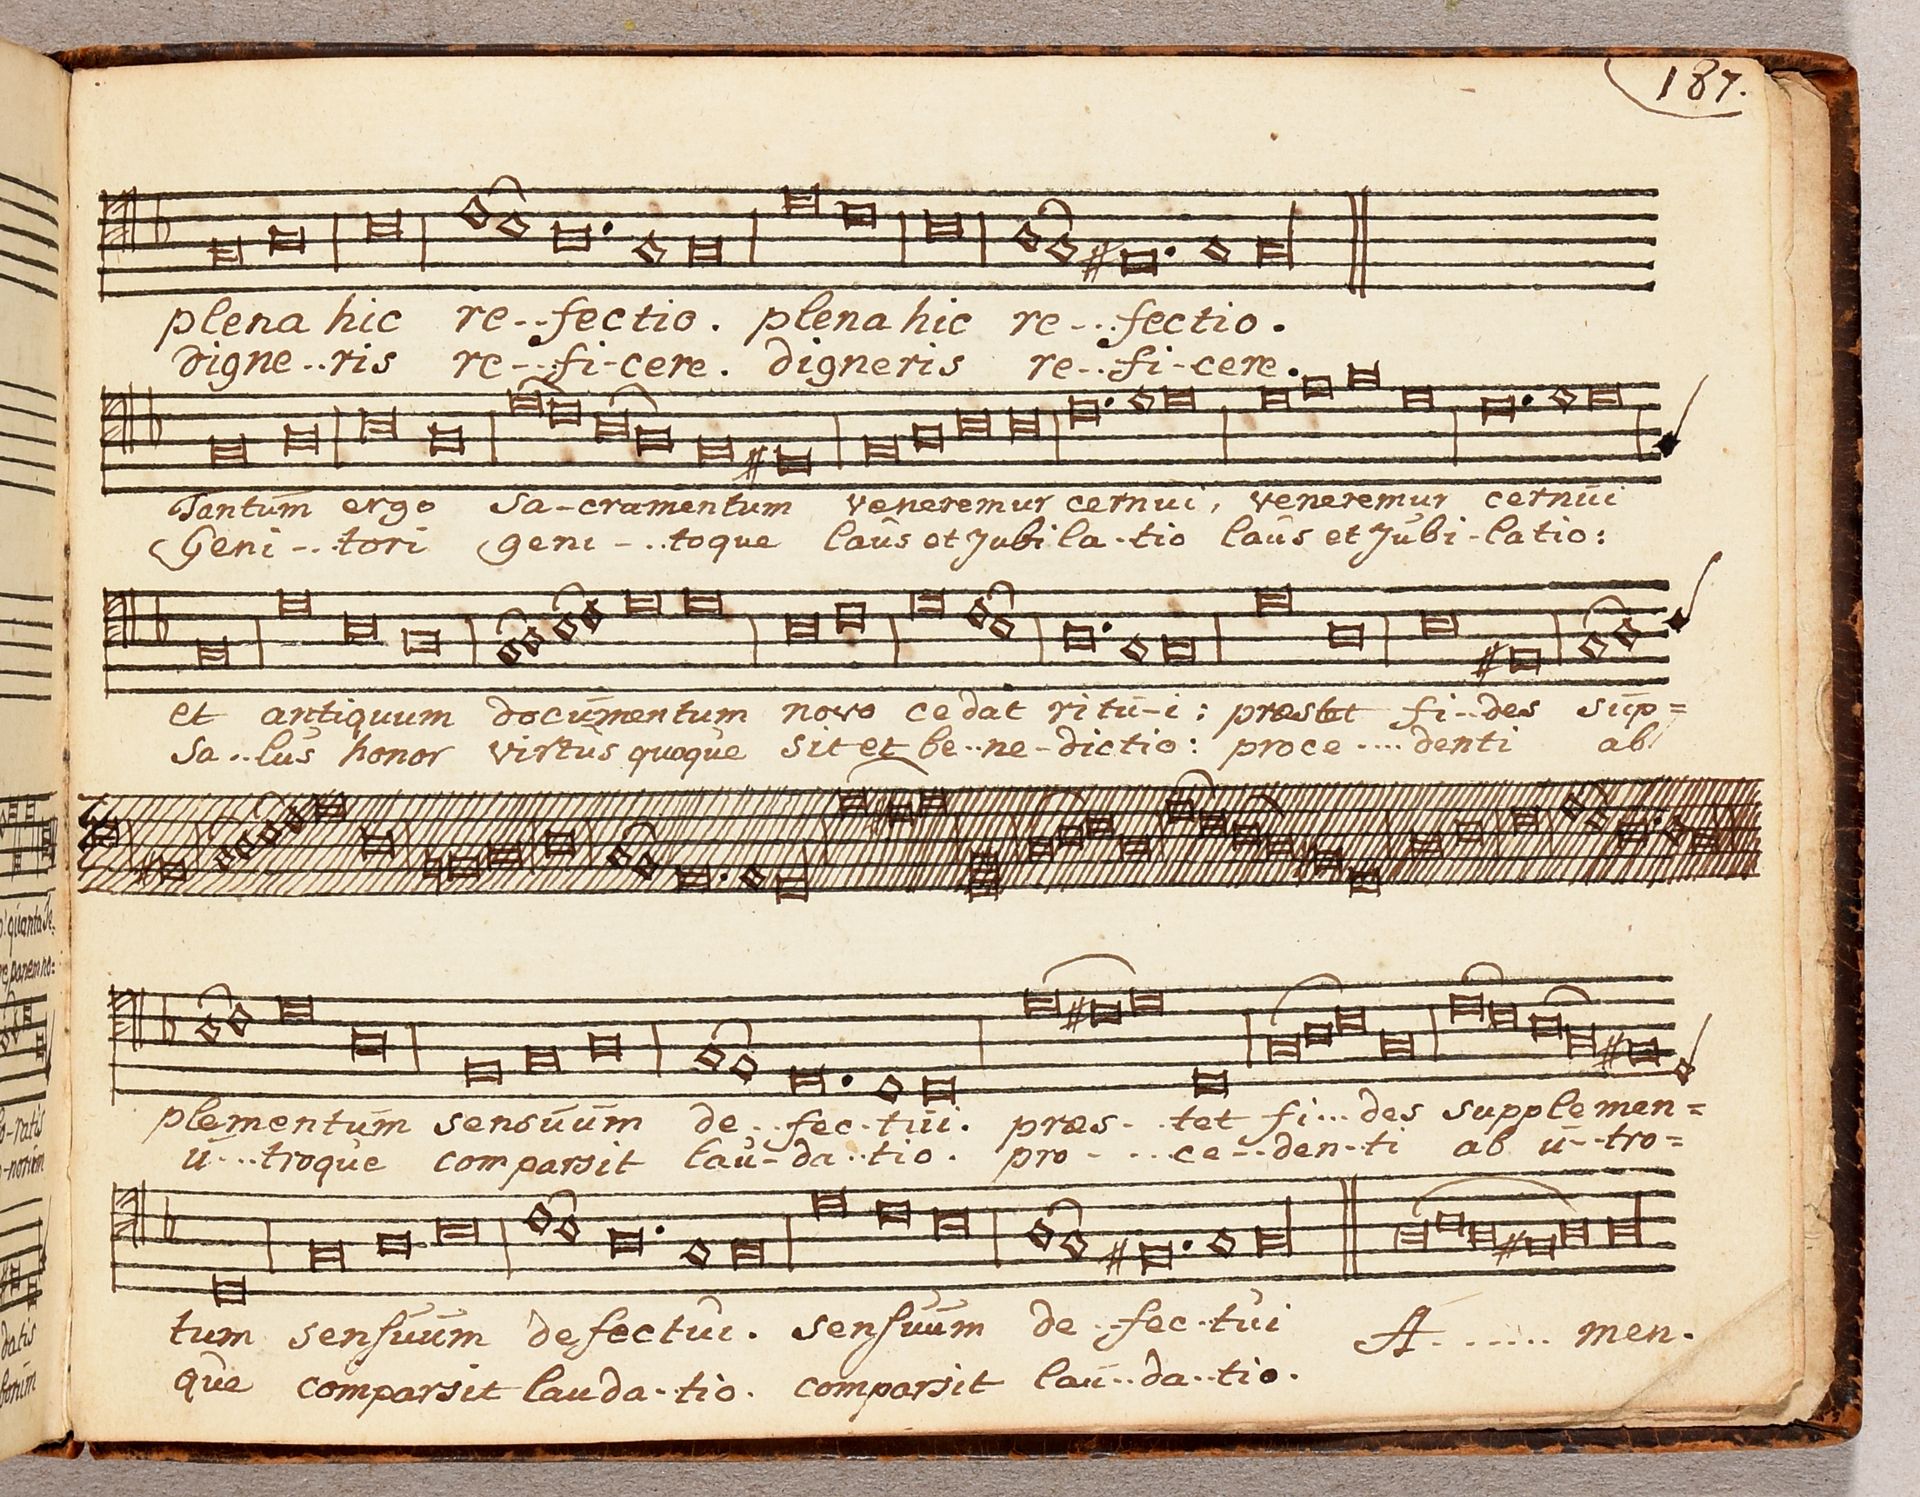 187.
plena hic re--fectio. plena hic re-..fectio.
digne..ris re--fi-cere. digneris re..fi-cere.
Tantum̄ ergo Sa-cramentum veneremur cernui, veneremur cernūi
Geni-..tori geni-..toque laūs et Jubila-tio laūs et Jūbi-latio:
et antiquum docūmentum novo cedat ritū-i: præstet fi--des sūp=
Sa..lūs honor virtūs quoqūe sit et be..ne-dictio: proce....denti ab
plementūm sensūūm de..fec-tūi. præs-.tet fi...des supplemen=
ū...troqūe comparsit laū-da..tio. pro-...ce--den-ti ab ū--tro=
tum sensūūm defectūi. sensūūm de..fec-tūi A...... men.
qūe comparsit lauda-tio. comparsit laū..da..tio.
quanta
panem no:
datis